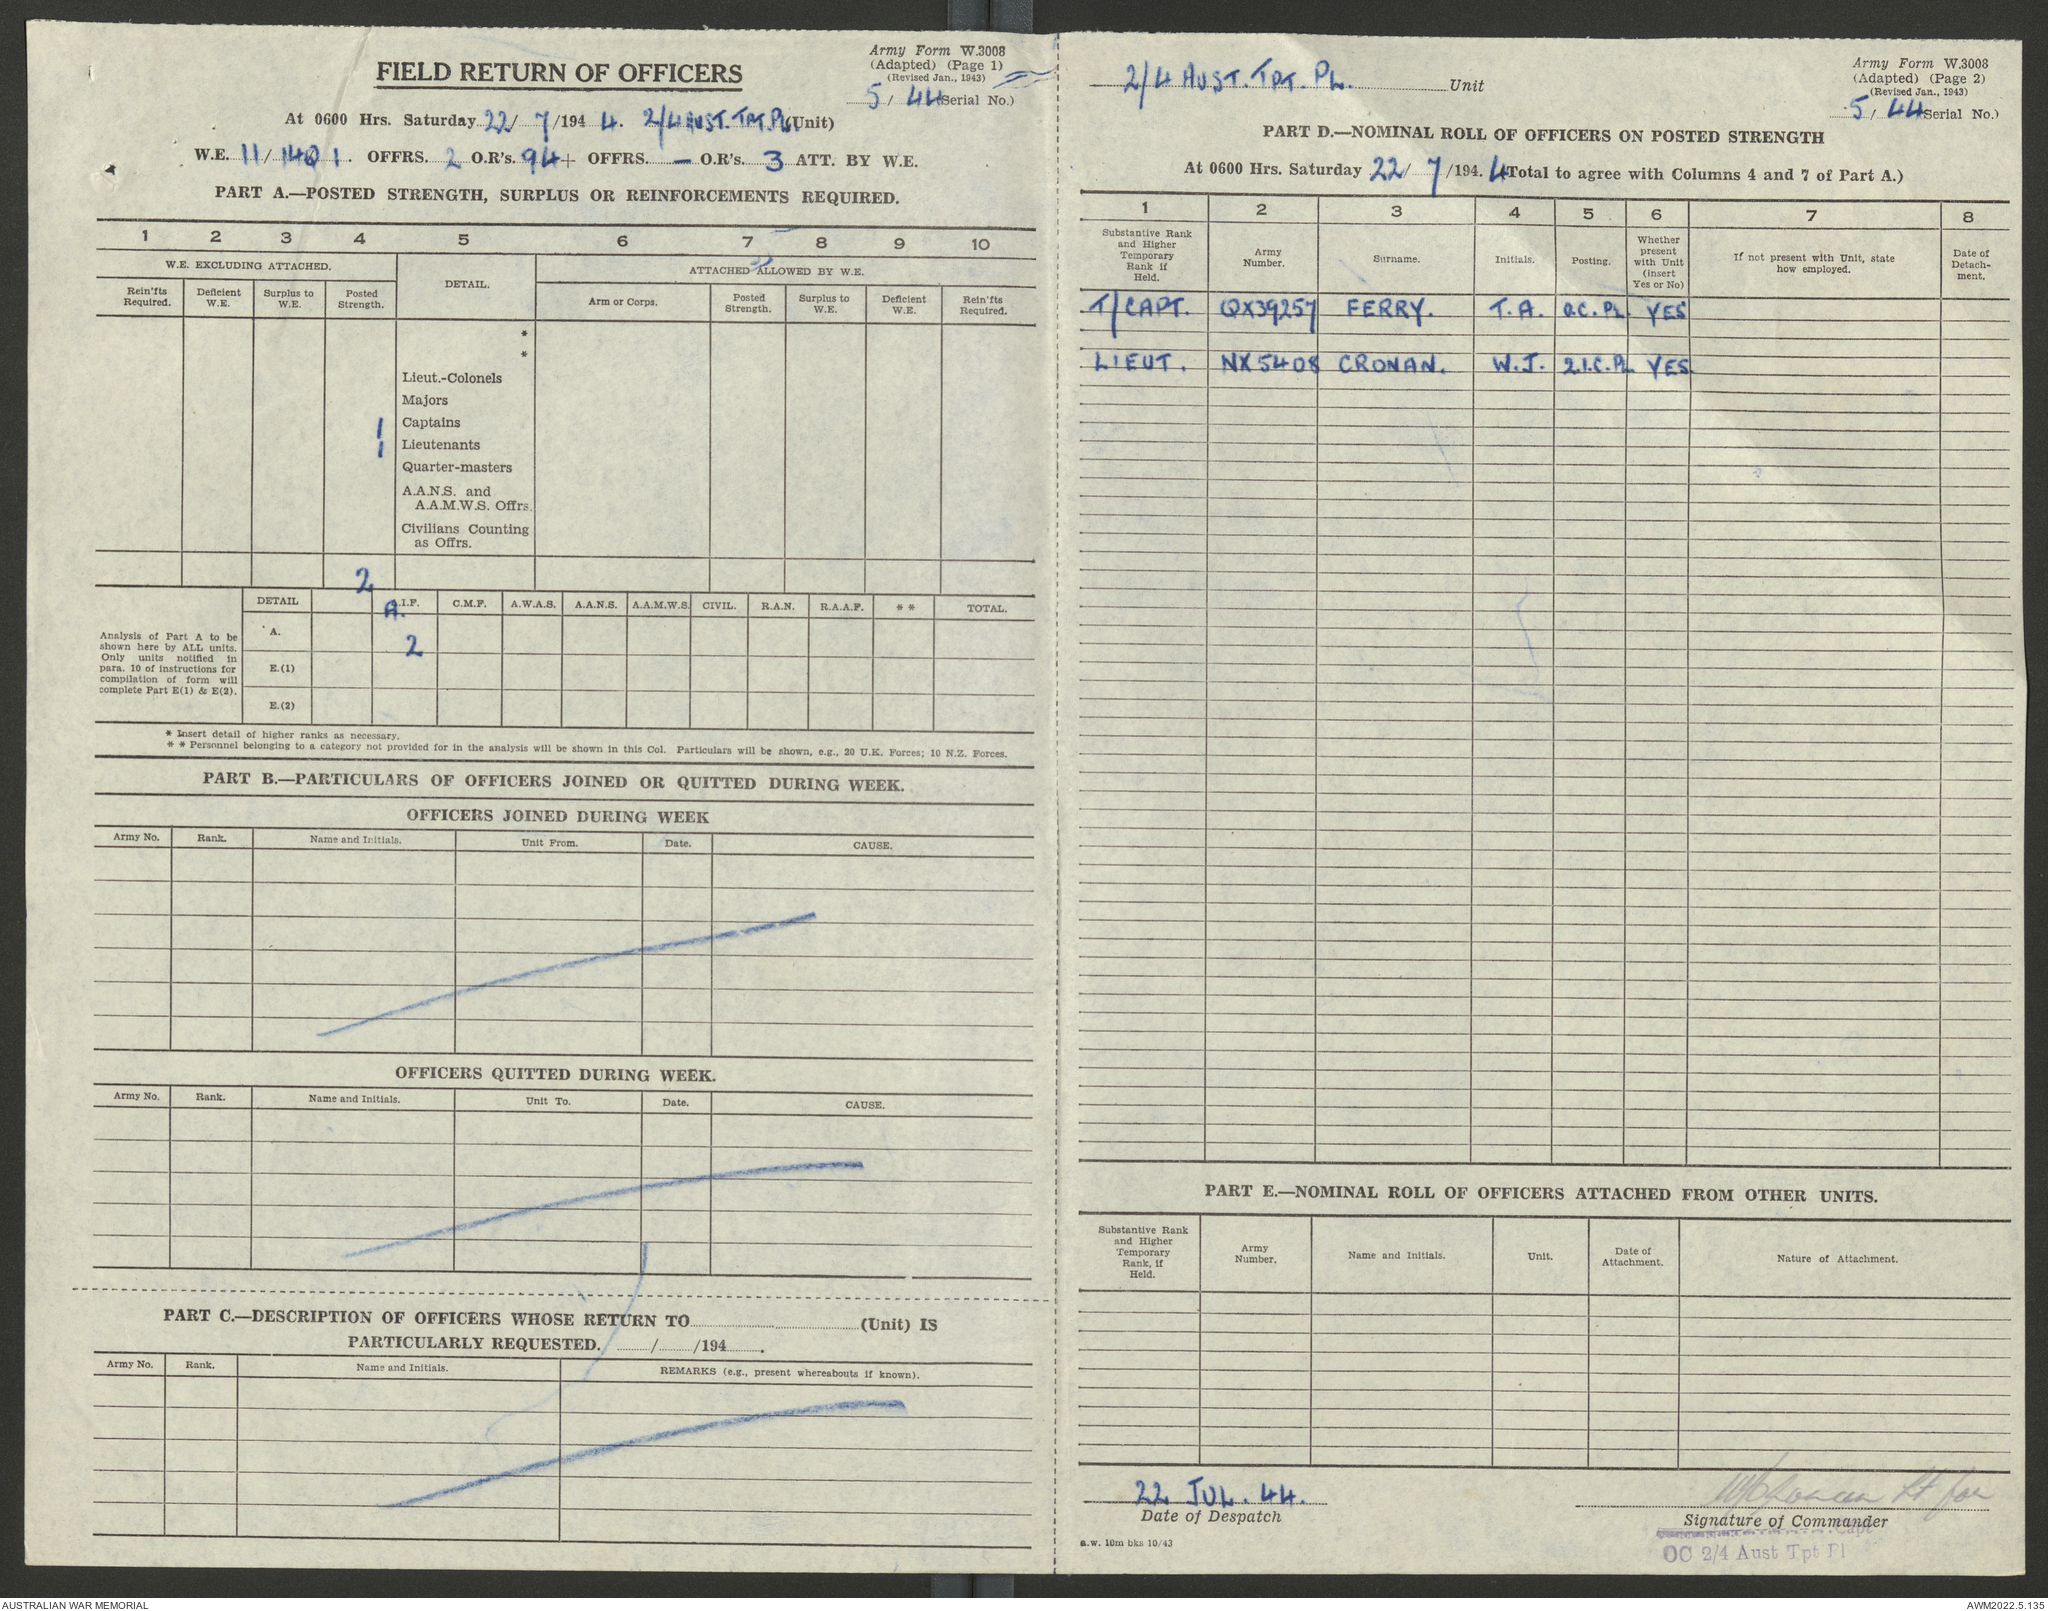 Army Form W.3008
(Adapted) (Page 1)
(Revised Jan., 1943)
5 / 44 (Serial No.)
FIELD RETURN OF OFFICERS
At 0600 Hrs. Saturday 22/ 7 /194 4. 2/4 AUST. TPT. PL (Unit)
W.E. 11/ 1401. OFFRS. 2 O.R's. 94 + OFFRS. — O.R's. 3 ATT. BY W.E.
PART A.—POSTED STRENGTH, SURPLUS OR REINFORCEMENTS REQUIRED.
1 2 3 4 5 6 7 8 9 10
W.E. EXCLUDING ATTACHED. DETAIL. ATTACHED ALLOWED BY W.E.
Rein'fts Required. Deficient W.E. Surplus to W.E. Posted Strength. Arm or Corps. Posted Strength. Surplus to W.E. Deficient W.E. Rein'fts Required.
*
*
Lieut.-Colonels
Majors
1 Captains
1 Lieutenants
Quarter-masters
A.A.N.S. and
A.A.M.W.S. Offrs.
Civilians Counting
as Offrs.
2
DETAIL A.I.F. C.M.F. A.W.A.S. A.A.N.S. A.A.M.W.S. CIVIL. R.A.N. R.A.A.F. * * TOTAL.
Analysis of Part A to be
shown here by ALL units.
Only units notified in
para. 10 of instructions for
compilation of form will
complete Part E(1) & E(2).
A. 2
E.(1)
E.(2)
* Insert detail of higher ranks as necessary.
* * Personnel belonging to a category not provided for in the analysis will be shown in this Col. Particulars will be shown, e.g., 20 U.K. Forces; 10 N.Z. Forces.
PART B.—PARTICULARS OF OFFICERS JOINED OR QUITTED DURING WEEK.
OFFICERS JOINED DURING WEEK
Army No. Rank. Name and Initials. Unit From. Date. CAUSE.
OFFICERS QUITTED DURING WEEK.
Army No. Rank. Name and Initials. Unit To. Date. CAUSE.
PART C.—DESCRIPTION OF OFFICERS WHOSE RETURN TO (Unit) IS
PARTICULARLY REQUESTED. / /194 .
Army No. Rank. Name and Initials. REMARKS (e.g., present whereabouts if known).
2/4 AUST. TPT. PL. Unit
Army Form W.3008
(Adapted) (Page 2)
(Revised Jan., 1943)
5 / 44 (Serial No.)
PART D.—NOMINAL ROLL OF OFFICERS ON POSTED STRENGTH
At 0600 Hrs. Saturday 22/ 7 /194. 4 Total to agree with Columns 4 and 7 of Part A.)
1 2 3 4 5 6 7 8
Substantive Rank and Higher Temporary Rank if Held. Army Number. Surname. Initials. Posting. Whether present with Unit (insert Yes or No) If not present with Unit, state how employed. Date of Detach-ment.
T/CAPT. QX39257 FERRY. T.A. O.C. PL. YES
LIEUT. NX5408 CRONAN. W.J. 2.I.C. PL YES.
PART E.—NOMINAL ROLL OF OFFICERS ATTACHED FROM OTHER UNITS.
Substantive Rank and Higher Temporary Rank, if Held. Army Number. Name and Initials. Unit. Date of Attachment. Nature of Attachment.
22 JUL. 44.
Date of Despatch
WJCronan Lt for
Signature of Commander
Capt
OC 2/4 Aust Tpt Pl
a.w. 10m bks 10/43
AUSTRALIAN WAR MEMORIAL
AWM2022.5.135